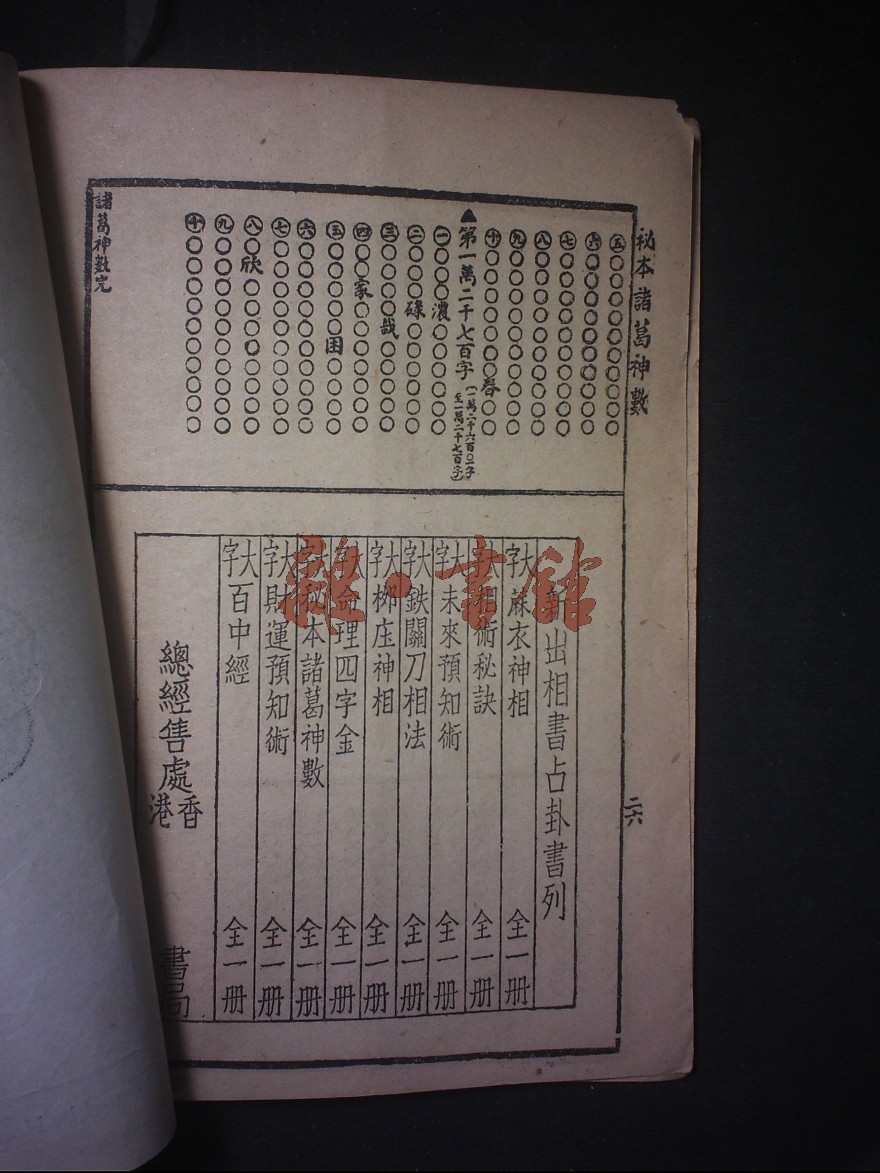 秘本諸葛神數
二六
㊄○○○○○○○○○○
㊅○○○○○○○○○○
㊆○○○○○○○○○○
㊇○○○○○○○○○○
㊈○○○○○○○○○○
㊉○○○○○○○春○○
▲第一萬二千七百字(一萬二千六百〇一字至一萬二千七百字)
㊀○○○濃○○○○○○
㊁○○○碌○○○○○○
㊂○○○○哉○○○○○
㊃○○家○○○○○○○
㊄○○○○○困○○○○
㊅○○○○○○○○○○
㊆○○○○○○○○○○
㊇○欣○○○○○○○○
㊈○○○○○○○○○○
㊉○○○○○○○○○○
諸葛神數完
新出相書占卦書列
大字麻衣神相 全一册
大字相術秘訣 全一册
大字未來預知術 全一册
大字鉄關刀相法 全一册
大字柳庄神相 全一册
大字命理四字金 全一册
大字秘本諸葛神數 全一册
大字財運預知術 全一册
大字百中經 全一册
總經售處香港 書局
雜·書館